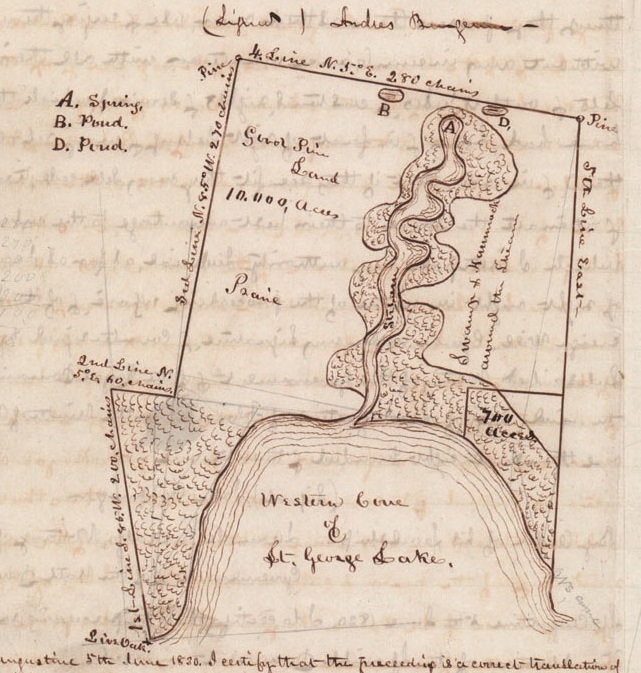 (Signed) Andres Burgevin
Pine
4. Line N. 5.° E. 280 chains
Pine
A. Spring,
B. Pond.
D. Pond.
B
A
D,
Good Pine
Land
10.000, Acres
3rd Line N. 85° W. 270 chains
5th Line East
Praire
Stream
Swamp & Hammock
around the Stream
2nd Line N.
5° E. 60 chains
700
Acres
1st Line S. 86. W. 200 chains
Western Cove
of
St. George Lake.
Live Oak.
ugustine 5th June 1830. I certify that the preceeding is a correct translation of